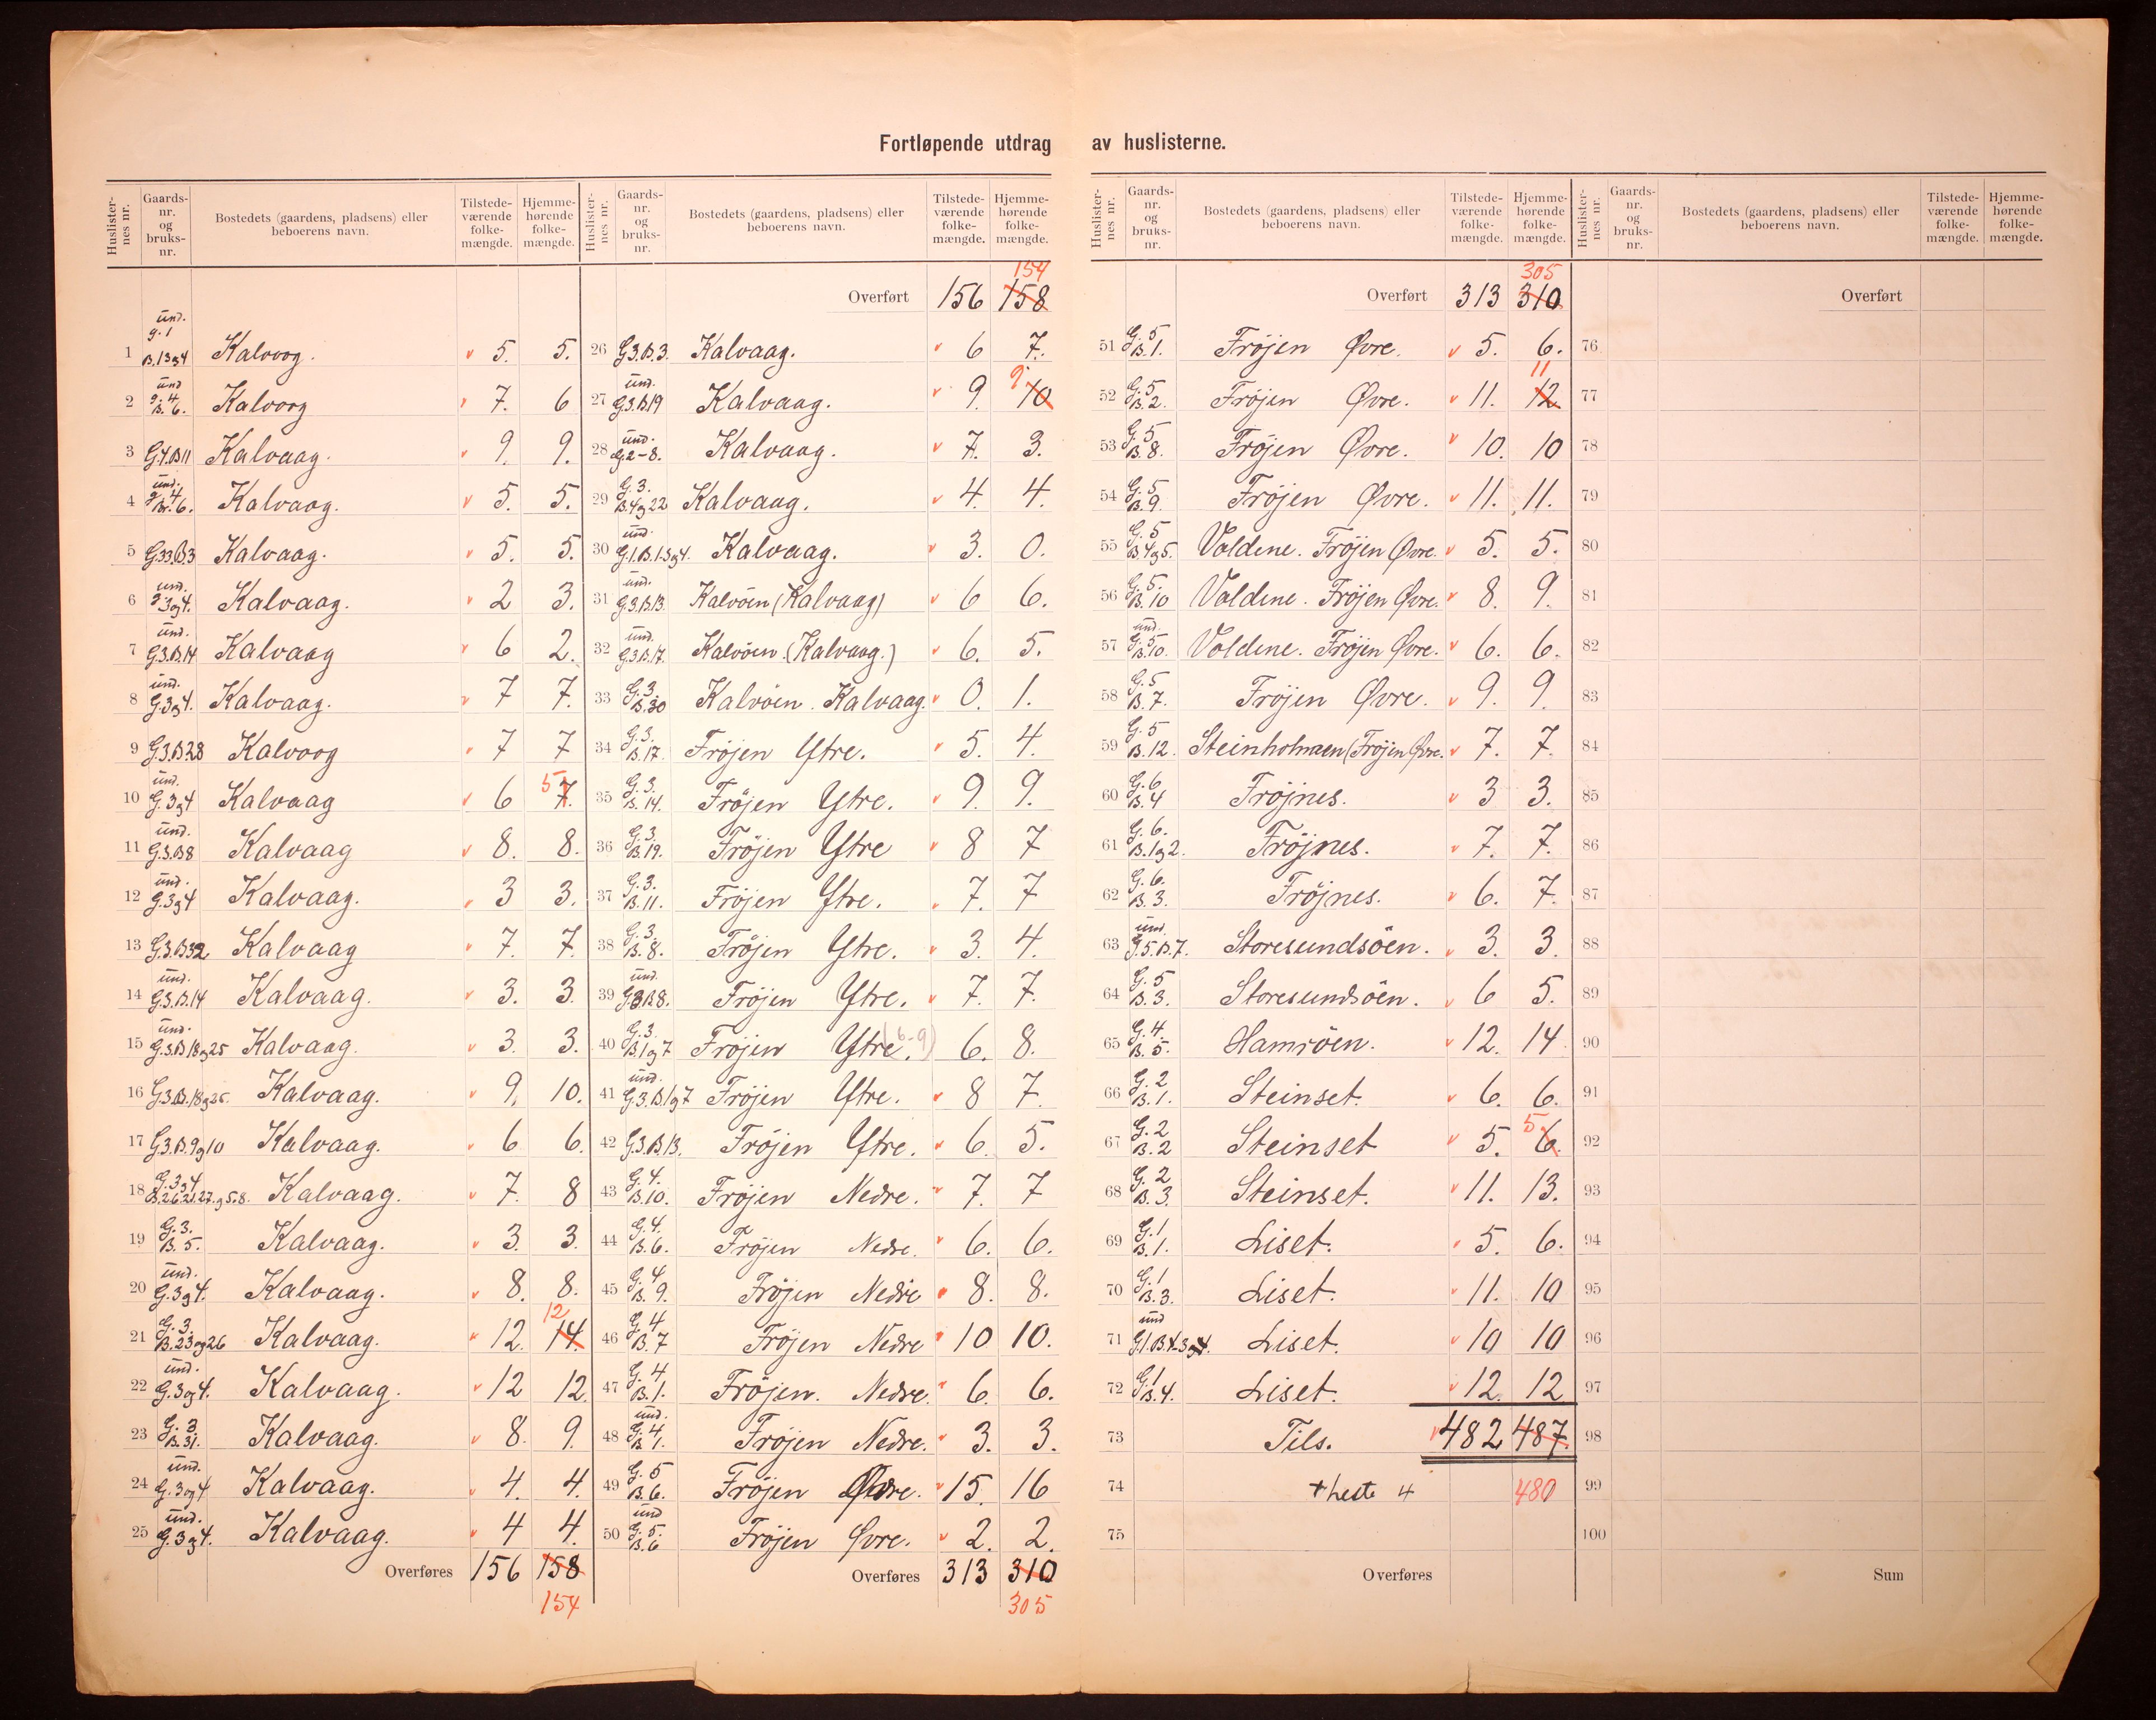 Fortløpende utdrag av huslisterne.
Huslister-nes nr. Gaards-nr. og bruks-nr. Bostedets (gaardens, pladsens) eller beboerens navn. Tilstede-værende folke-mængde. Hjemme-hørende folke-mængde.
1 und. g. 1 B. 1 3 og 4 Kalvoog. 5. 5.
2 und g. 4 B. 6. Kalvoog 7. 6
3 G.4.B11 Kalvaag. 9. 9.
4 und. g. 4 Br. 6. Kalvaag. 5. 5.
5 G.33.B.3 Kalvaag. 5. 5.
6 und. g. 3 og 4. Kalvaag. 2 3.
7 und. G.3.B.14 Kalvaag 6 2.
8 und. G.3 og 4. Kalvaag. 7 7.
9 G.3.B.28 Kalvoog 7 7
10 und. G. 3 og 4 Kalvaag 6 7. 5
11 und. G.3.B8 Kalvaag 8. 8.
12 und. G.3 og 4 Kalvaag. 3 3.
13 G.3.B32 Kalvaag 7. 7.
14 und. G.3.B.14 Kalvaag. 3. 3.
15 und. G.3.B 18 og 25 Kalvaag. 3. 3.
16 G.3.B.18 og 25. Kalvaag. 9. 10.
17 G.3.B.9 og 10 Kalvaag. 6 6.
18 G. 3 og 4 B.26.21.27. og 5.8. Kalvaag. 7. 8
19 G. 3. B. 5. Kalvaag. 3. 3.
20 und. G.3 og 4. Kalvaag. 8. 8.
21 G. 3. B.23 og 26 Kalvaag. 12. 14. 12
22 und. G.3 og 4. Kalvaag. 12 12.
23 G. 3. B. 31. Kalvaag. 8. 9.
24 und. G. 3 og 4 Kalvaag. 4. 4.
25 und. G. 3 og 4. Kalvaag. 4 4.
Overføres 156 158
154
Huslister-nes nr. Gaards-nr. og bruks-nr. Bostedets (gaardens, pladsens) eller beboerens navn. Tilstede-værende folke-mængde. Hjemme-hørende folke-mængde.
154
Overført 156 158
26 G.3.B.3. Kalvaag. 6 7.
27 und. G.3.B.19 Kalvaag. 9. 10 9.
28 und. G.2-8. Kalvaag. 7. 3.
29 G. 3. B.4 og 22 Kalvaag. 4. 4.
30 und. G.1.B.1-3 og 4. Kalvaag. 3. 0.
31 und. G.3.B.13. Kalvöen (Kalvaag) 6 6.
32 und. G.3.B.17. Kalvöen (Kalvaag.) 6. 5.
33 G. 3. B.30 Kalvöen. Kalvaag. 0. 1.
34 G. 3. B.17. Fröjen Ytre. 5. 4.
35 G. 3. B. 14. Fröjen Ytre. 9. 9.
36 G. 3. B.19. Fröjen Ytre 8 7
37 G. 3. B. 11. Fröjen Ytre. 7. 7
38 G. 3. B. 8. Fröjen Ytre. 3. 4.
39 und. G.3.B 8. Fröjen Ytre. 7. 7.
40 G. 3. B.1 og 7 Fröjen Ytre. (6-9) 6. 8.
41 und. G.3.B.1 og 7 Fröjen Ytre. 8 7.
42 G.3.B.13. Fröjen Ytre. 6. 5.
43 G. 4. B.10. Fröjen Nedre. 7. 7
44 G. 4. B. 6. Fröjen Nedre. 6. 6.
45 G. 4 B. 9. Fröjen Nedre 8. 8.
46 G. 4 B. 7 Fröjen Nedre 10 10.
47 G. 4 B. 1. Fröjen. Nedre. 6. 6.
48 und. G. 4. B 1. Fröjen Nedre. 3. 3.
49 G. 5 B. 6. Fröjen Övre. 15. 16
50 und G. 5. B. 6 Fröjen Øvre. 2. 2.
Overføres 313 310
305
Huslister-nes nr. Gaards-nr. og bruks-nr. Bostedets (gaardens, pladsens) eller beboerens navn. Tilstede-værende folke-mængde. Hjemme-hørende folke-mængde.
305
Overført 313 310
51 G. 5 B. 1. Fröjen Øvre. 5. 6.
52 G. 5 B. 2. Fröjen Øvre. 11. 12 11
53 G. 5 B. 8. Fröjen Øvre. 10. 10
54 G. 5 B. 9. Fröjen Øvre. 11. 11.
55 G. 5 B 4 og 5. Voldene. Fröjen Øvre. 5. 5.
56 G. 5. B. 10 Voldene. Fröjen Øvre. 8. 9.
57 und. G. 5 B. 10. Voldene. Fröjen Øvre. 6. 6.
58 G. 5 B. 7. Fröjen Øvre. 9. 9.
59 G. 5 B. 12. Steinholmen (Fröjen Øvre. 7. 7.
60 G. 6 B. 4 Fröjnes. 3 3.
61 G. 6. B. 1 og 2. Fröjnes. 7. 7.
62 G. 6. B. 3. Fröjnes. 6. 7.
63 und. G.5.B.7. Storesundsöen. 3. 3.
64 G. 5 B. 3. Storesundsöen. 6 5.
65 G. 4. B. 5. Hamröen. 12. 14
66 G. 2 B. 1. Steinset. 6. 6.
67 G. 2 B. 2 Steinset 5. 6. 5
68 G. 2 B. 3. Steinset. 11. 13.
69 G. 1 B. 1. Liset. 5. 6.
70 G. 1 B. 3. Liset. 11. 10
71 und G.1.B.1-3 og 4. Liset. 10 10
72 G. 1 B. 4. Liset. 12. 12
73 Tils. 482 487.
74 + 4 480
75
Overføres
Huslister-nes nr. Gaards-nr. og bruks-nr. Bostedets (gaardens, pladsens) eller beboerens navn. Tilstede-værende folke-mængde. Hjemme-hørende folke-mængde.
Overført
76
77
78
79
80
81
82
83
84
85
86
87
88
89
90
91
92
93
94
95
96
97
98
99
100
Sum